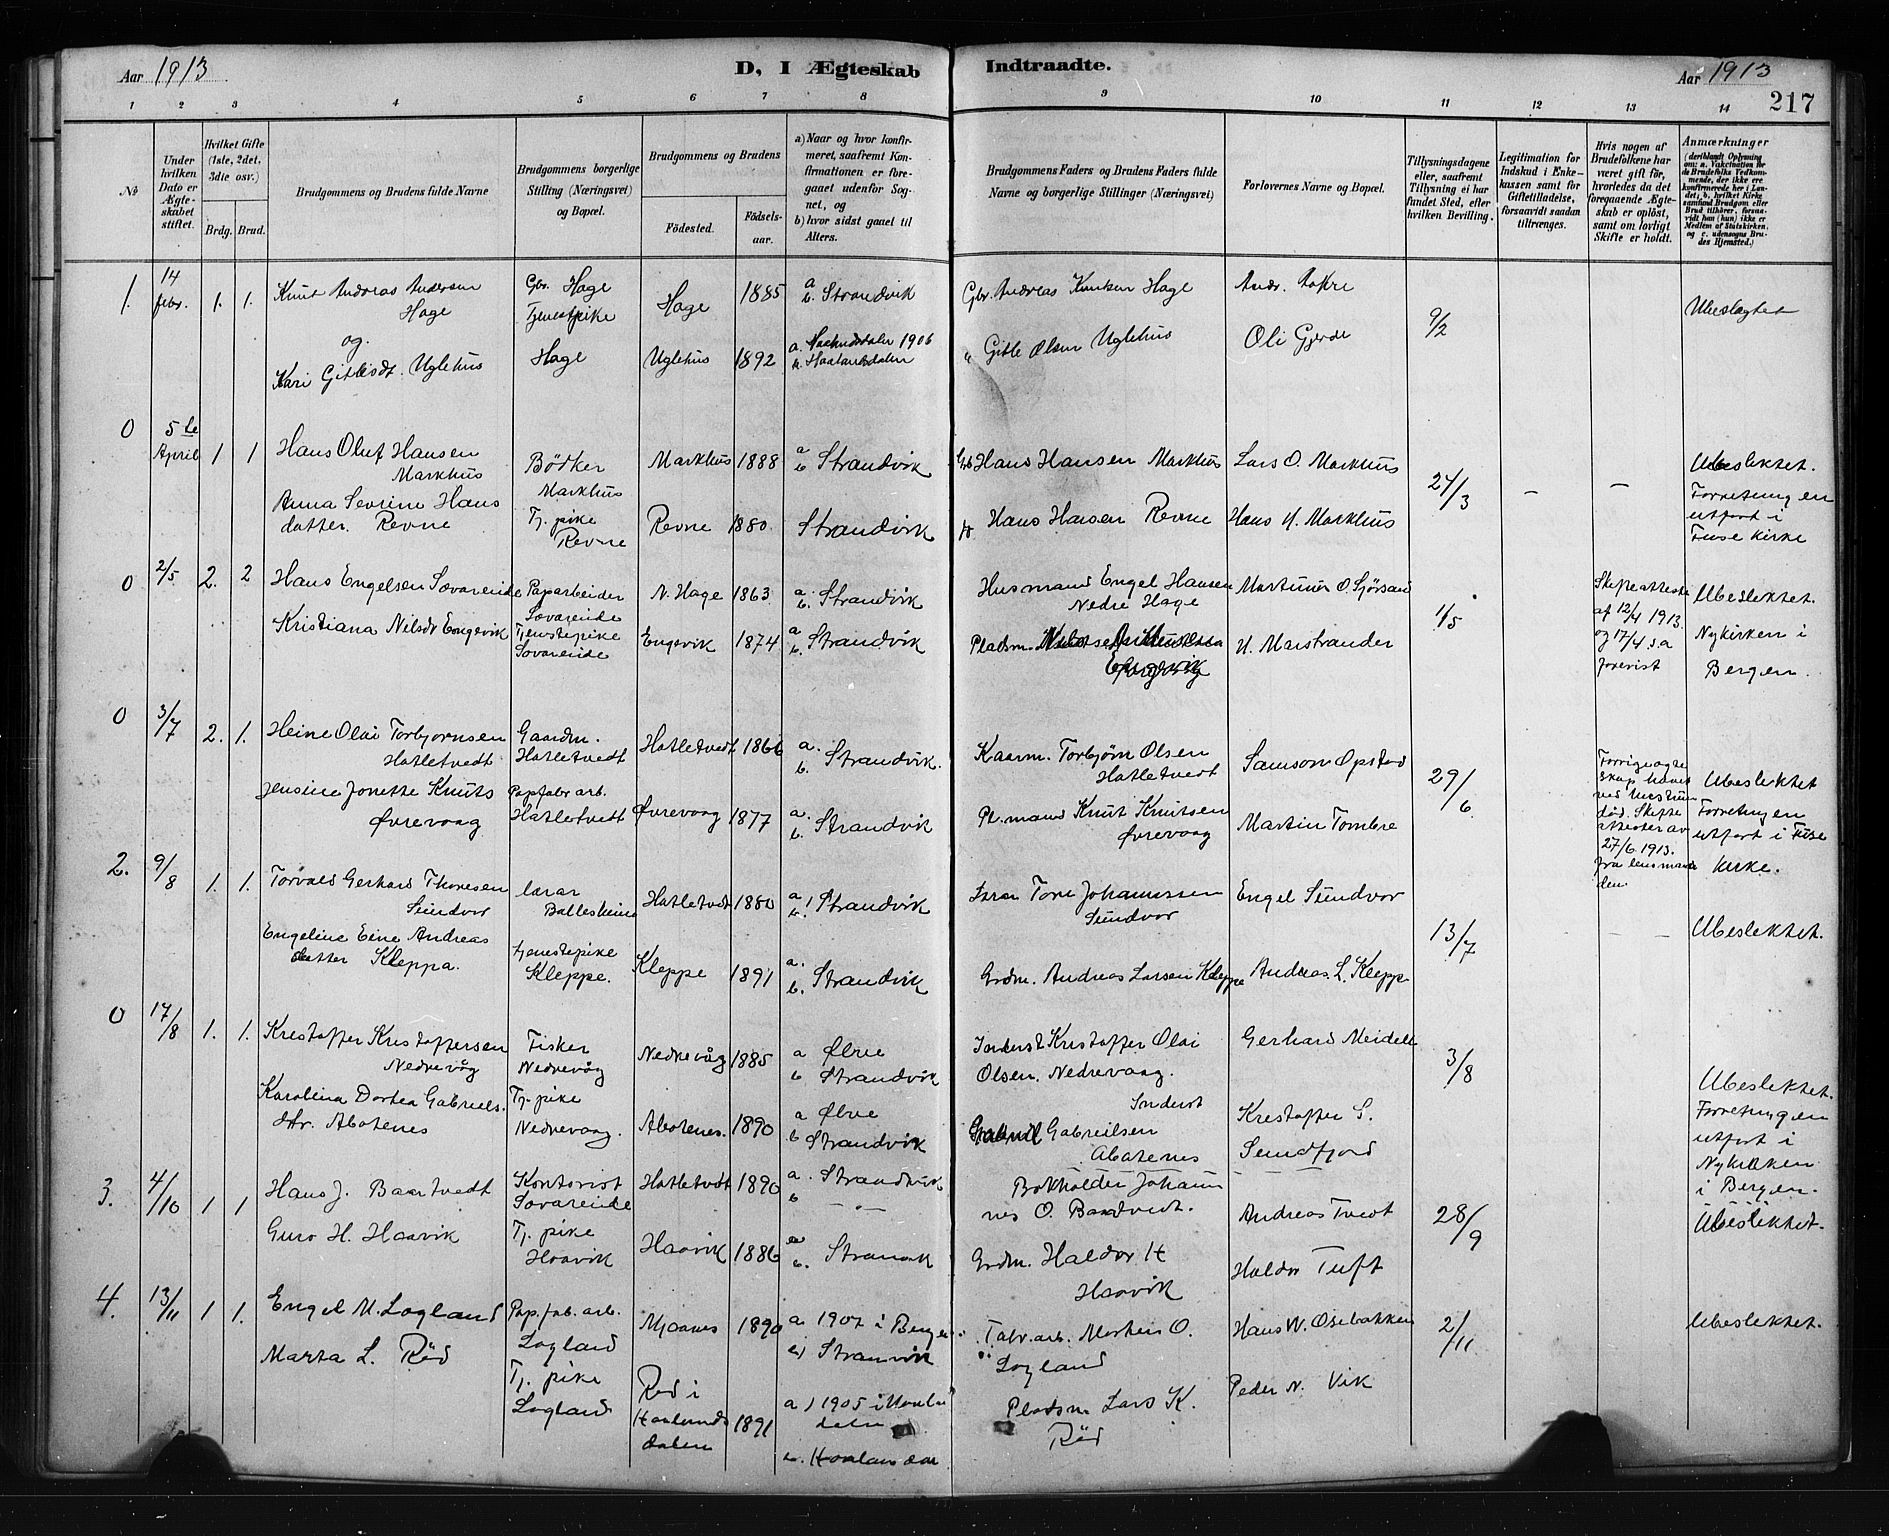 Aar 1913
D, I Ægteskab Indtraadte.
Aar 1913
217
1 2 3 4 5 6 7 8 9 10 11 12 13 14
No
Under hvilken Dato er Ægteskabet stiftet.
Hvilket Gifte (1ste, 2det, 3die osv.)
Brdg. Brud.
Brudgommens og Brudens fulde Navne
Brudgommens borgerlige Stilling (Næringsvei) og Bopæl.
Brudgommens og Brudens
Fødested.
Fødselsaar.
a) Naar og hvor konfirmeret, saafremt Konfirmationen er foregaaet udenfor Sognet, og
b) hvor sidst gaaet til Alters.
Brudgommens Faders og Brudens Faders fulde Navne og borgerlige Stillinger (Næringsvei)
Forlovernes Navne og Bopæl.
Tillysningsdagene eller, saafremt Tillysning ei har fundet Sted, efter hvilken Bevilling.
Legitimation for Indskud i Enkekassen samt for Giftetilladelse, forsaavidt saadan tiltrænges.
Hvis nogen af Brudefolkene har været gift før, hvorledes da det foregaaende Ægteskab er opløst, samt om lovligt Skifte er holdt.
Anmærkninger (deriblandt Oplysning om: a. Vakcination for de Brudefolks Vedkommende, der ikke ere konfirmerede her i Landet; b. hvilket Kirkesamfund Brudgom eller Brud tilhører, forsaavidt han (hun) ikke er Medlem af Statskirken, og c. udensogns Brudes Hjemsted.)
1. 14 febr. 1. 1. Knut Andreas Andersen Hage
Gbr. Hage
Hage 1885
a b. Strandvik
Gbr. Andreas Knutsen Hage
Andr. Aakre
9/2
Ubeslægtet
og
Kari Gitlesdt. Uglehus
Tjenestpike Hage
Uglehus 1892
a. Haalandsdalen 1906
b. Haalandsdalen
" Gitle Olsen Uglehus
Oli Gjerde
0 5te April 1 1 Hans Oluf Hansen Markhus
Bödker Markhus
Markhus 1888
a b Strandvik
Gb Hans Hansen Markhus
Lars O. Markhus
24/3 – –
Ubeslektet.
Forretningen utført i Fuse Kirke
Anna Sevrine Hansdatter. Revne
Tj. pike Revne
Revne 1880.
Strandvik
Hans Hansen Revne
Hans H. Markhus
0 2/5 2. 2 Hans Engelsen Sævareide
Paparbeider Sævareide
N. Hage 1863
a. b. Strandvik
Husmand Engel Hansen Nedre Hage
Martinus O. Sjörsand
1/5
Skifteatteste af 12/4 1913. og 17/4 s.a forevist
Ubeslektet. Nykirken i Bergen.
Kristiana Nilsdr Engevik
Tjenstepike Sævareide
Engevik 1874
a b. Strandvik
Pladsm. Engevik
H. Marstrander
0 3/7 2. 1. Heine Olai Torbjornsen Hatletvedt
Gaardm. Hatletvedt
Hatletvedt 1866
a. b. Strandvik.
Kaarm. Torbjörn Olsen Hatletvedt
Samson Opstad
29/6
Forrige ægteskap hævet ved hustruens död. Skifteattester av 27/6 1913. fra lensmanden
Ubeslektet Forretningen utfort i Fuse Kirke.
Jensine Jonette Knuts Øvrevaag
Papfabr arb. Hatletvedt
Øvrevaag 1877
a. b. Strandvik
Pl.mand Knut Knutsen Øvrevaag
Martin Tombre
2. 9/8 1. 1. Torvald Gerhard Thoresen Sundvor
lærar Balleshein
Hatletvedt 1880
a b. Strandvik
Tore Johannessen Sundvor
Engel Sundvor
13/7 – –
Ubeslektet.
Engeline Eine Andreasdatter Kleppa.
tjenestepike Kleppe.
Kleppe 1891
a. b. Strandvik
Grdm. Andreas Larsen Kleppe
Andreas L. Kleppe
0 17/8 1. 1. Kristoffer Kristoffersen Nedrevåg
Fisker Nedrevåg
Nedrevåg 1885
a Ølve
b Strandvik
Inderst Kristoffer Olai Olsen. Nedrevaag.
Gerhard Meidell
3/8
Ubeslektet. Forretningen utfort i Nykirken i Bergen.
Karolina Dortea Gabriels. dtr. Abotenes
Tj. pike Nedrevaag.
Abotenes. 1890
a Ølve
b Strandvik
Inderst Gabriel Gabrielsen Abotenes
Krestoffer S. Sundfjord
3. 4/10 1 1 Hans J. Baartvedt
Kontorist Sævareide
Hatletvedt 1890
a. Strandvik
b – " –
Bokholder Johannes O. Baartvedt.
Andreas Tvedt
28/9
Ubeslektet.
Guro H. Haavik
Tj. pike Haavik
Haavik 1886
a b. Stranvik
Grdm. Haldor H Haavik
Haldor Tuft
4. 13/11 1 1. Engel M. Logland
Pap.fab. arb. Logland
Mjaanes 1890
a. 1907 i Bergen
b) Stranvik
Fabr.arb. Mortens O. Logland
Hans W. Osebakken
2/11
Ubeslektet.
Marta L. Röd
Tj. pike Logland
Röd i Haalandsdalen 1891
a) 1905 i Haalandsdalen
b. Haalandsdal
Pladsm Lars K. Röd
Peder N. Vik